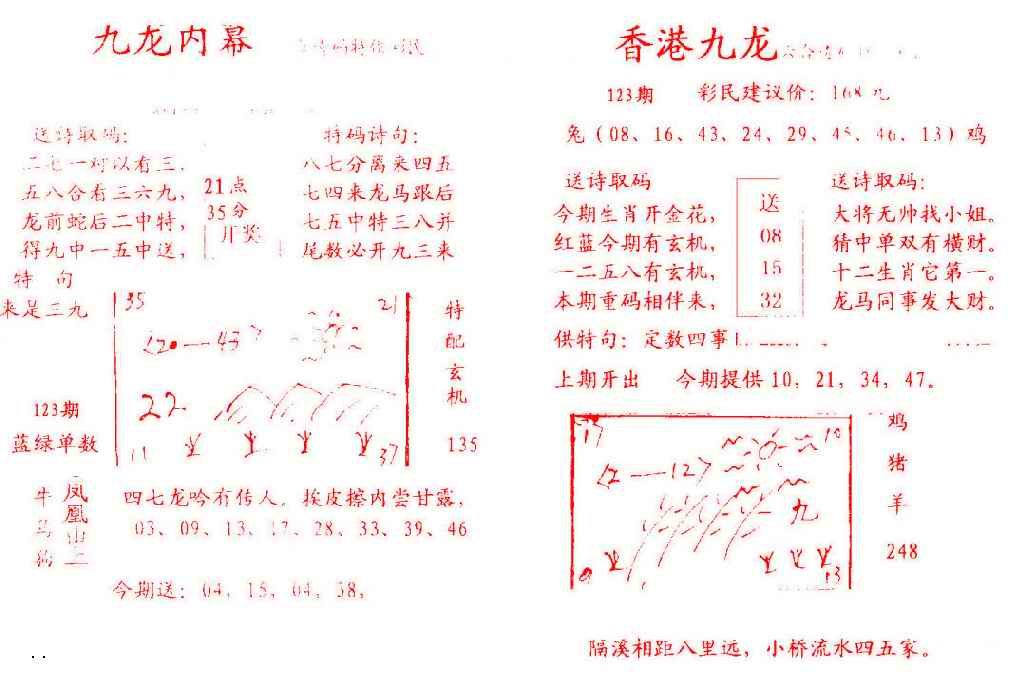 九龙内幕
送诗取码：
二七一对以有三，
五八合看三六九，
龙前蛇后二中特，
得九中一五中送，
21点
35分
开奖
特码诗句：
八七分离来四五
七四来龙马跟后
七五中特三八并
尾数必开九三来
特 句
来是三九
35 21
20—43
22
11 37
特
配
玄
机
135
123期
蓝绿单数
牛
马
狗
凤
凰
山
上
四七龙吟有传人。挨皮擦内尝甘露，
03、09、13、17、28、33、39、46
今期送：04，15，04，38，
香港九龙
123期 彩民建议价：168元
兔（08、16、43、24、29、45、46、13）鸡
送诗取码
今期生肖开金花，
红蓝今期有玄机，
一二五八有玄机，
本期重码相伴来，
送
08
15
32
送诗取码：
大将无帅找小姐。
猜中单双有横财。
十二生肖它第一。
龙马同事发大财。
供特句：定数四事
上期开出 今期提供10，21，34，47。
17 10
2—12
九
9 13
鸡
猪
羊
248
隔溪相距八里远，小桥流水四五家。